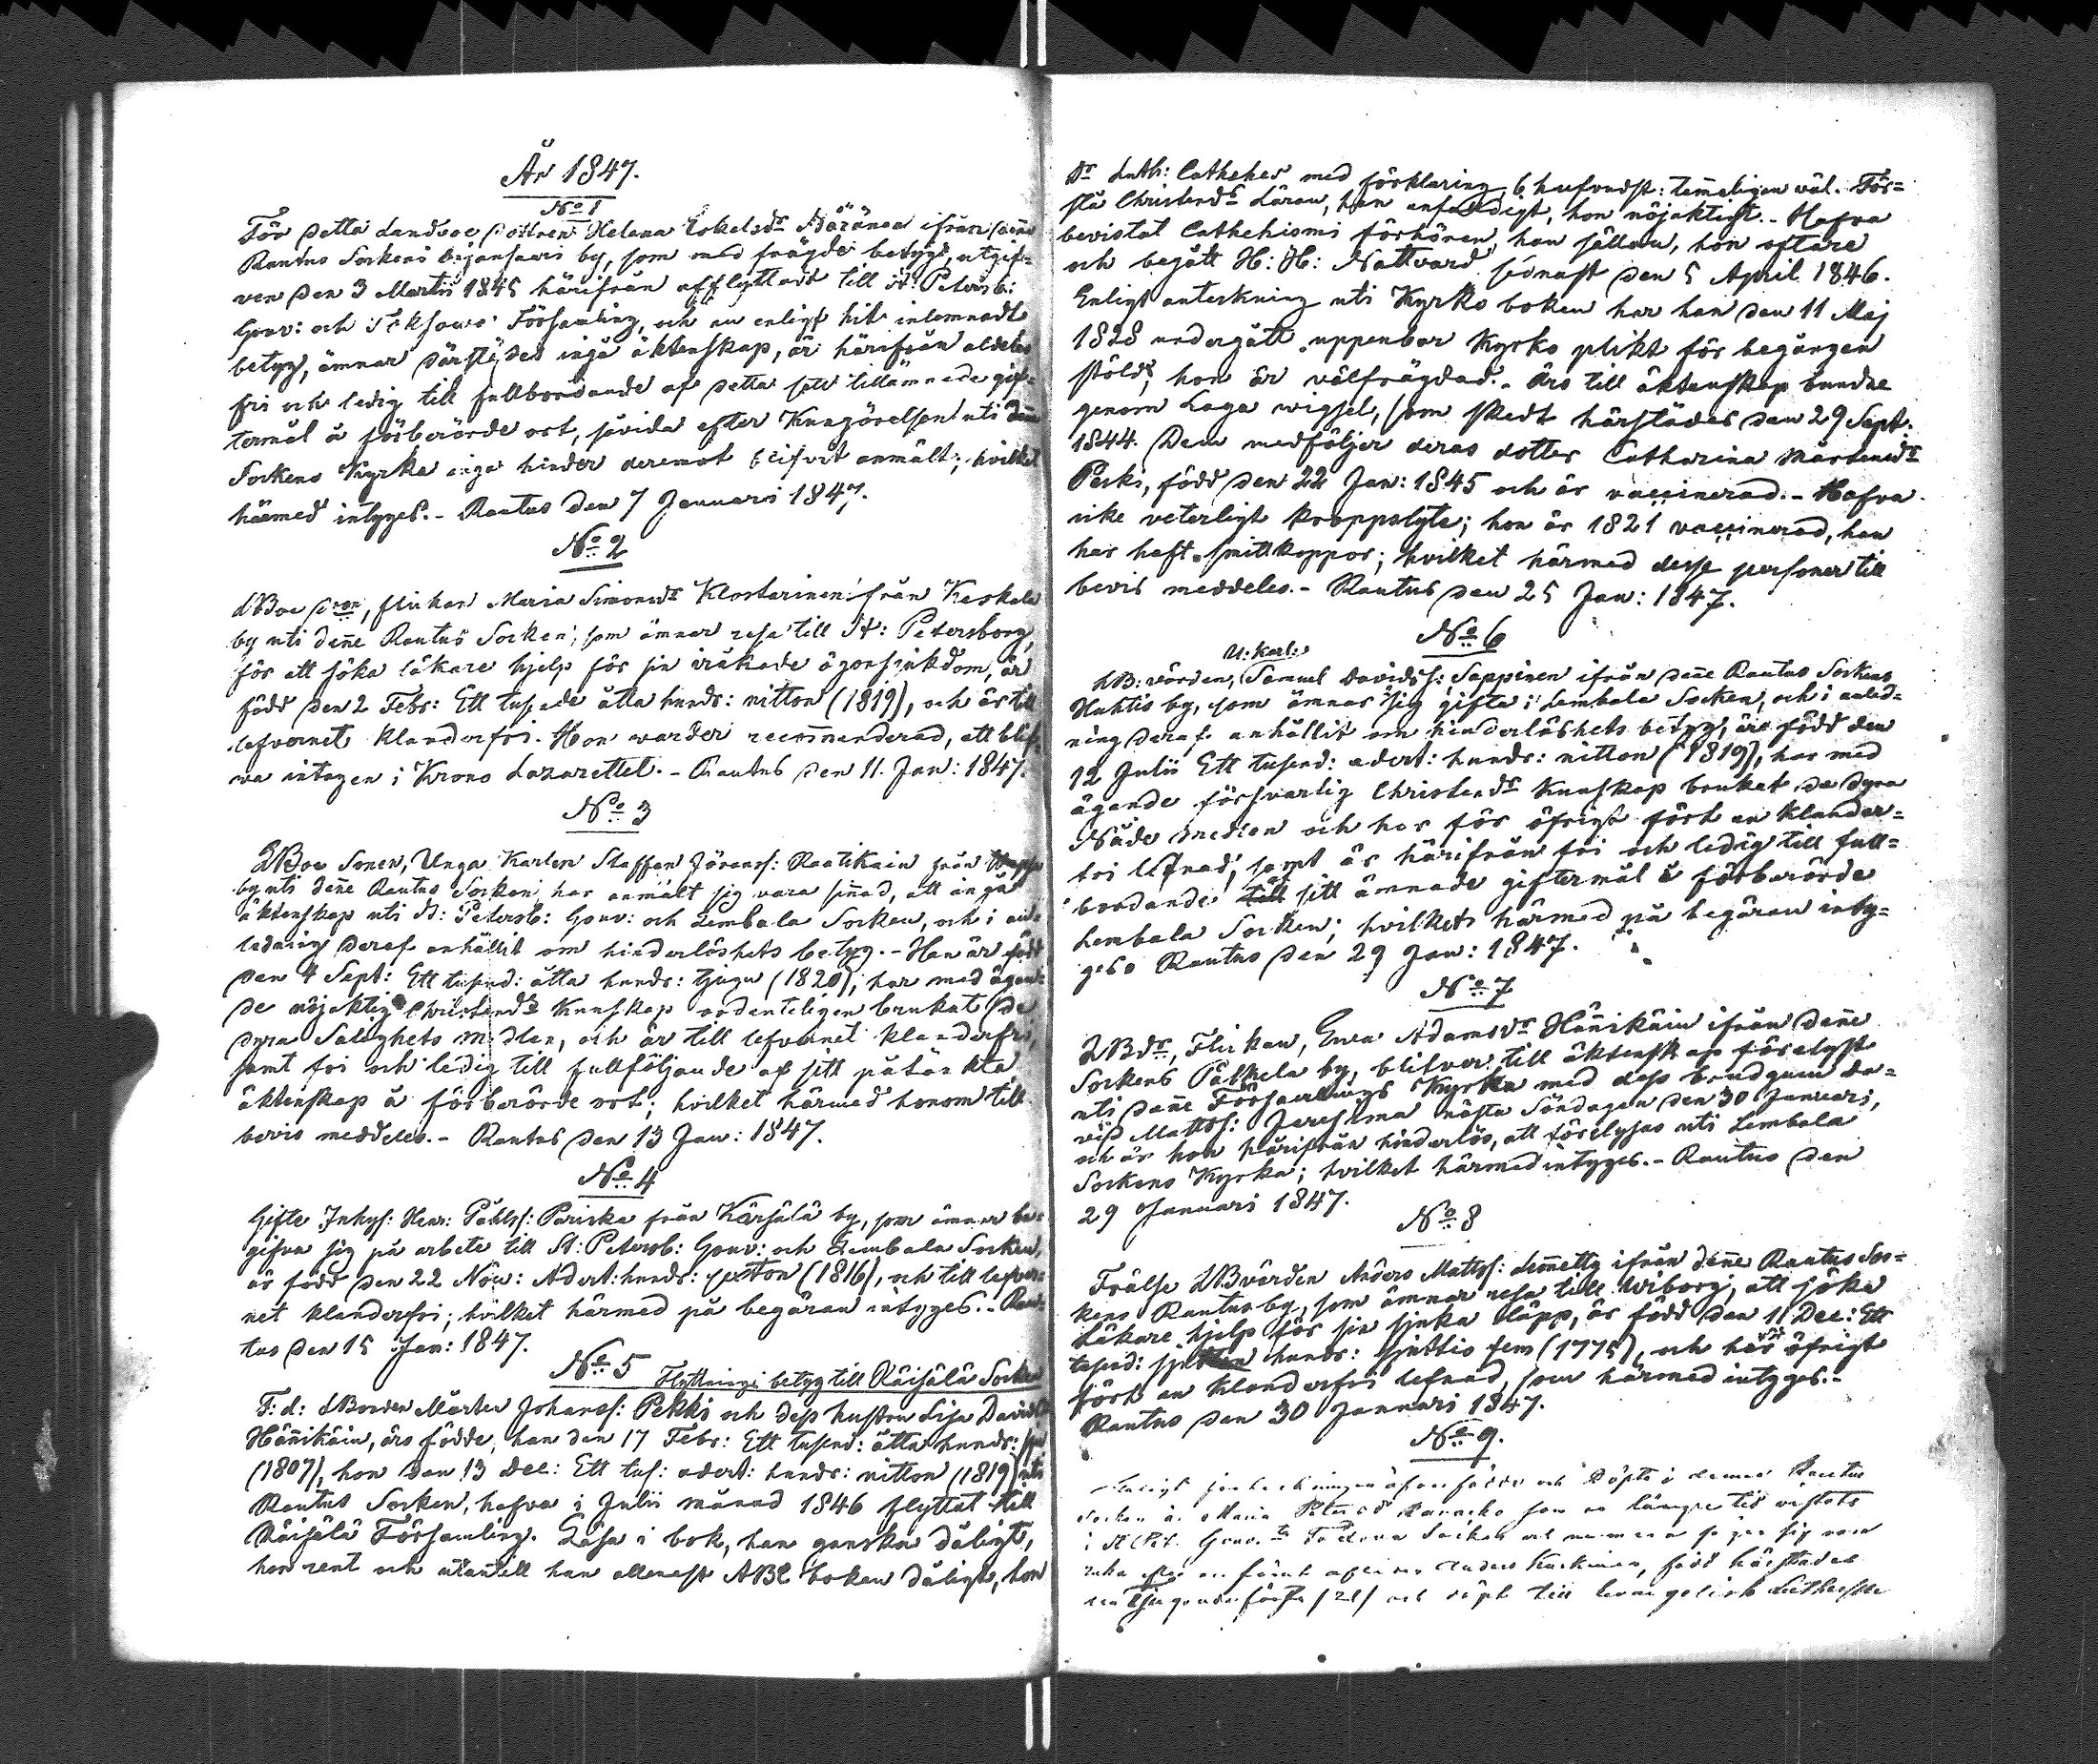 År 1847.
No 1
För detta Landboe dottren Helena Eskelsdr Näränen ifrån denne
Rautus Sockens by, som med frägde betyg, utgif-
ven den 3 Martii 1845 härifrån afflyttadt till St. Petersb:
Gouv: och Toksowa Församling, och nu enligt hit inlemnadt
betyg, ämnar därstädes ingå äktenskap, är härifrån aldeles
fri och ledig till fullbordande af detta sitt tillämnade gif-
termål å förberörde ort, såvida efter Kungörelsen uti denne
Sockens Kyrka inga hinder deremot blifvit anmält; hvilket
härmed intyges. - Rautus den 7 Januari 1847.
No 2
LBoe dron, flickan Maria Simonsdr Klostarinen från Keskela
by uti denne Rautus Socken, som ämnar resa till St: Petersborg,
för att söka läkare hjelp för sin iråkade ögonsjukdom, är
född den 2 Febr: Ett tusende åtta hundr: nitton (1819), och är till
lefvernet klanderfri. Hon warder recommenderad, att blif-
va intagen i Krono Lazarettet. - Rautus den 11. Jan: 1847.
No 3
LBoe Sonen, Unga Karlen Staffan Göranss: Raatikain från
by uti denne Rautus Socken, har anmält sig vara sinnad, att ingå
äktenskap uti St: Petersb: Gouv: och Lembala Socken, och i an-
ledning deraf anhållit om hinderlöshets betyg. - Han är född
den 4 Sept: Ett tusend: åtta hundr: tjugu (1820), har med ägan-
de nöjaktig Christendr Kunskap ordenteligen brukat de
dyra Salighets medlen, och är till lefvernet klanderfri,
samt fri och ledig till fullföljande af sitt påtänkta
äktenskap å förberörde ort; hvilket härmed honom till
bevis meddeles. - Rautus den 13 Jan: 1847.
No 4
Gifte Inhys: Henr: Påhlss: Pariska från Kärsälä by, som ämnar be-
gifva sig på arbete till St: Petersb: Gouv: och Lembala Socken,
är född den 22 Nov: Adert: hundr: sexton (1816), och till lefver-
net klanderfri; hvilket härmed på begäran intyges. - Rau-
tus den 15 Jan: 1847.
No 5 Flyttnings betyg till Räisälä Socken
F: d: LBonden Mårten Johanss: Pekki och dess hustru Lisa Davidsdr
Hännikäin, äro födde, han den 17 Febr: Ett tusend: åtta hundr: sju
(1807), hon den 13 Dec: Ett tus: adert: hundr: nitton (1819) uti
Rautus Socken, hafva i Julii månad 1846 flyttat till
Räisälä Församling. Läsa i bok, han ganska dåligt,
hon rent och utantill han allenast ABC boken dåligt, hon
Dr Luth: Catheches med förklaring, 6 hufvudst: temmeligen väl. För-
stå Christendr Läran, han enfaldigt, hon nöjaktigt. - Hafva
bevistat Cathechismi förhören, han sällan, hon oftare
och begått H: H: Nattvard sednast den 5 April 1846.
Enligt anteckning uti Kyrko boken har han den 11 Maj
1828 undergått uppenbar Kyrko plikt för begången
stöld, hon är välfrägdad. - Äro till äktenskap bundne
genom Laga wigsel, som skedt härstädes den 29 Sept:
1844. Dem medföljer deras dotter Catharina Mårtensdr
Pekki, född den 22 Jan: 1845 och är vaccinerad. - Hafva
icke veterligt kroppslyte; hon är 1821 vaccinerad, han
har haft smittkoppor; hvilket härmed desse personer till
bevis meddeles. - Rautus den 25 Jan: 1847.
No 6
U: Karl:
LB: vörden, Samuel Davidss: Sappinen ifrån denne Rautus Sockens
Huhtis by, som ämnar sig gifta i Lembala Socken, och i anled-
ning deraf anhållit om hinderlöshets betyg, är född den
12 Julii Ett tusend: adert: hundr: nitton (1819), har med
ägande försvarlig Christendr Kunskap brukat de dyra
Nåde medlen och har för öfrigt fört en klander-
fri lefnad, samt är härifrån fri och ledig till full-
bordande af sitt ämnade giftermål å förberörde
Lembala Socken; hvilket härmed på begäran inty-
ges. Rautus den 29 Jan: 1847.
No 7
LBdr, Flickan, Ewa Adamsdr Hännikäin ifrån denne
Sockens Påtkela by, blifver till äktenskap förelyst
uti denne Församlings Kyrka med dess brudgum Da-
vid Mattss: nästa Söndagen den 30 Januari,
och är hon härifrån hinderlös, att förelysas uti Lembala
Sockens Kyrka; hvilket härmed intyges. - Rautus den
29 Januari 1847.
No 8
Frälse LBvörden Anders Mattss: Lemmetty ifrån denne Rautus Soc-
kens Rautus by, som ämnar resa till Wiborg, att söka
Läkare hjelp för sin sjuka läpp, är född den 11 Dec: Ett
tusend: sju hundr: sjuttio fem (1775), och har för öfrigt
fört en klanderfri lefnad, som härmed intyges. -
Rautus den 30 Januari 1847.
No 9.
Enligt födde och döpte i denna Rautus
Socken är Maria Petersdr som en längre tid vistats
i St Pet. Gouv. Socken och nu mera säges sig vara
Anders född härstädes
tjugonde första (21) och döpt till Evangelisk Lutherska